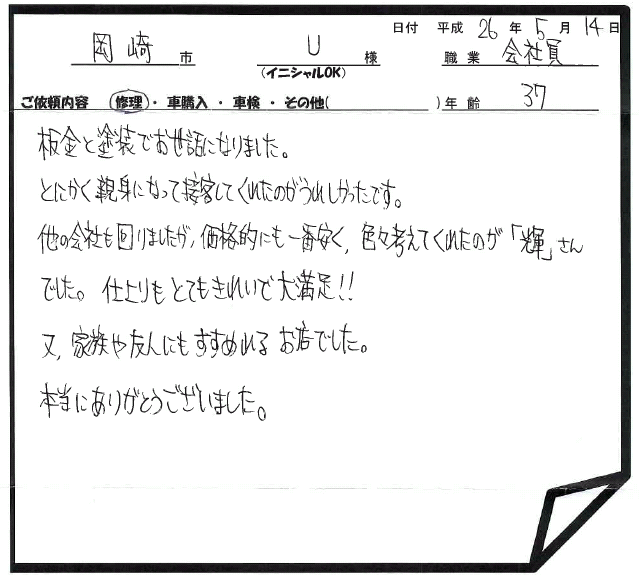 日付 平成 26 年 5 月 14 日
岡崎 市 U 様 職業 会社員
(イニシャルOK)
ご依頼内容 修理・車購入・車検・その他( )年齢 37
板金と塗装でお世話になりました。
とにかく親身になって接客してくれたのがうれしかったです。
他の会社も回りましたが、価格的にも一番安く、色々考えてくれたのが「輝」さん
でした。仕上りもとてもきれいで大満足!!
又、家族や友人にもすすめれるお店でした。
本当にありがとうございました。